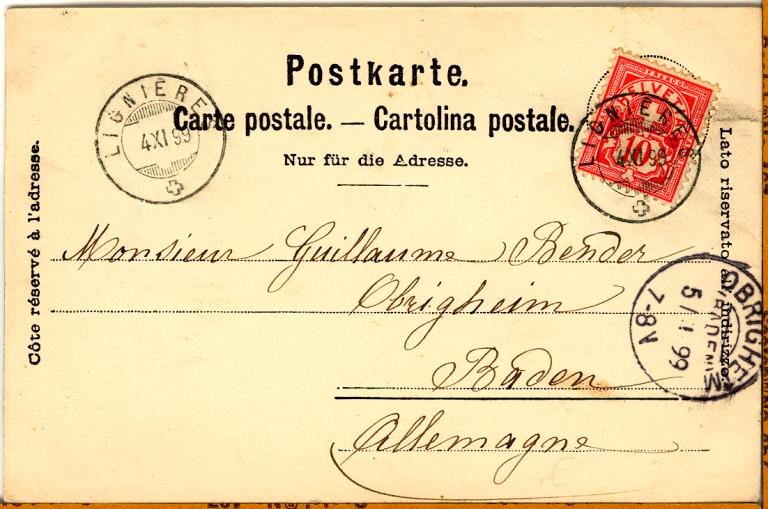 Postkarte.
Carte postale. — Cartolina postale.
Nur für die Adresse.
Côte réservé à l'adresse.
Lato riservato all'indirizzo.
LIGNIÈRES
4 XI 99
FRANCO
HELVETIA
10
LIGNIÈRES
4 XI 99
Monsieur Guillaume Bender
Obrigheim
Baden
Allemagne
OBRIGHEIM
BADEN
5/11 99
7-8V